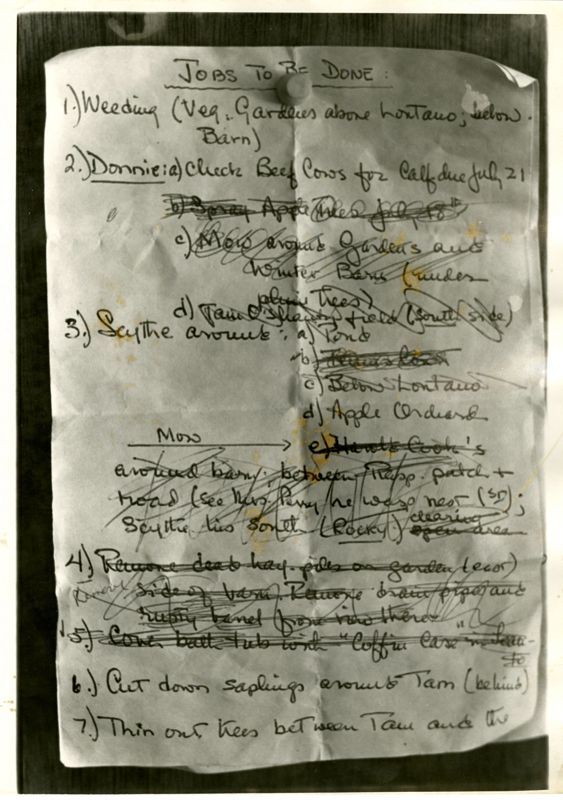 JOBS TO BE DONE:
1.) Weeding (Veg. Gardens above Lontano, below
Barn)
2.) Donnie: a) Check Beef Cows for Calf due July 21
b) Spray Apple Trees July 18th
c) Mow around Gardens and
Winter Barn (under
plum trees)
d) field (South side)
3.) Scythe around: a) Pond
b) Tennis Court
c) Below Lontano
d) Apple Orchard
Mow e) Cook's
around barn, between Rasp. patch +
road (See Mrs. Perry re wasp nest (SD);
Scythe his South (Rocky) clearing
open area
4.) Remove dead hay piles on garden (east)
side of barn. Remove drain pipe and
rusty barrel from
5.) Cover bath tub with "Coffin Case"
6.) Cut down saplings around Tarn (behind)
7.) Thin out trees between Tarn and the